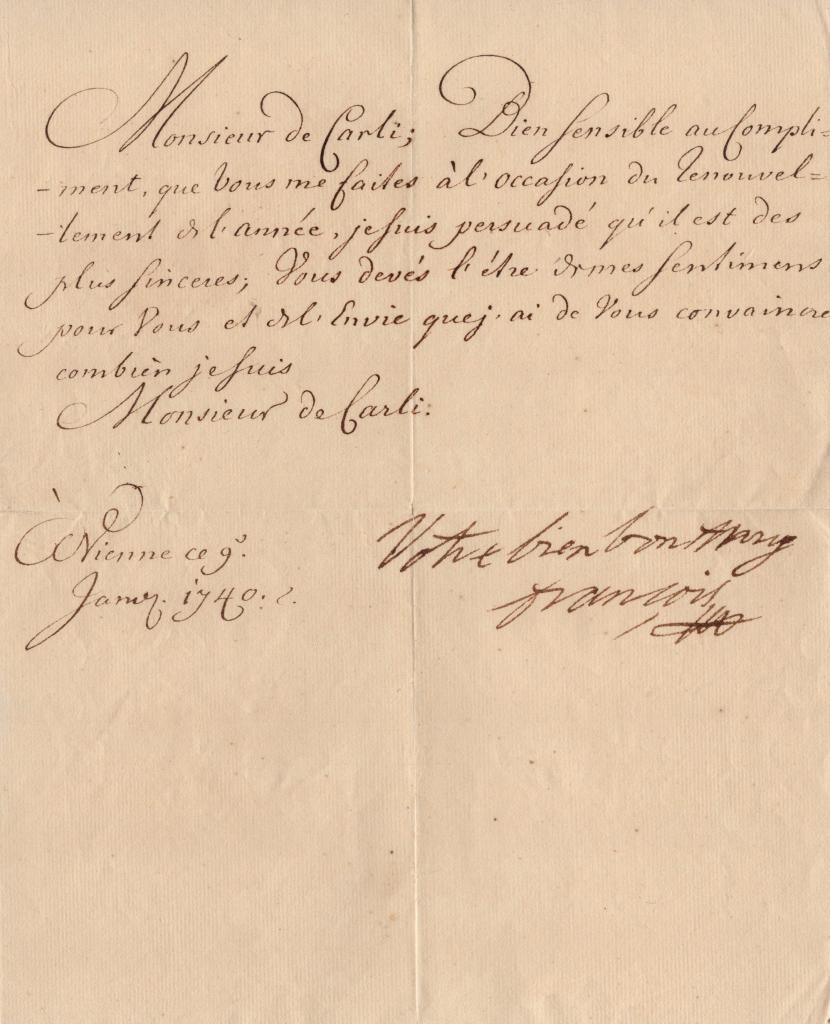 Monsieur de Carli; Bien sensible au Compli=
-ment, que Vous me faites à l'occasion du Renouvel=
-lement de l'année, je suis persuadé qu'il est des
plus sinceres; Vous devés l'être de mes sentimens
pour Vous et de l'Envie que j'ai de Vous convaincre
combien je suis
Monsieur de Carli:
à Vienne ce 9.
Janvr. 1740:
Votre bien bon amy
françois